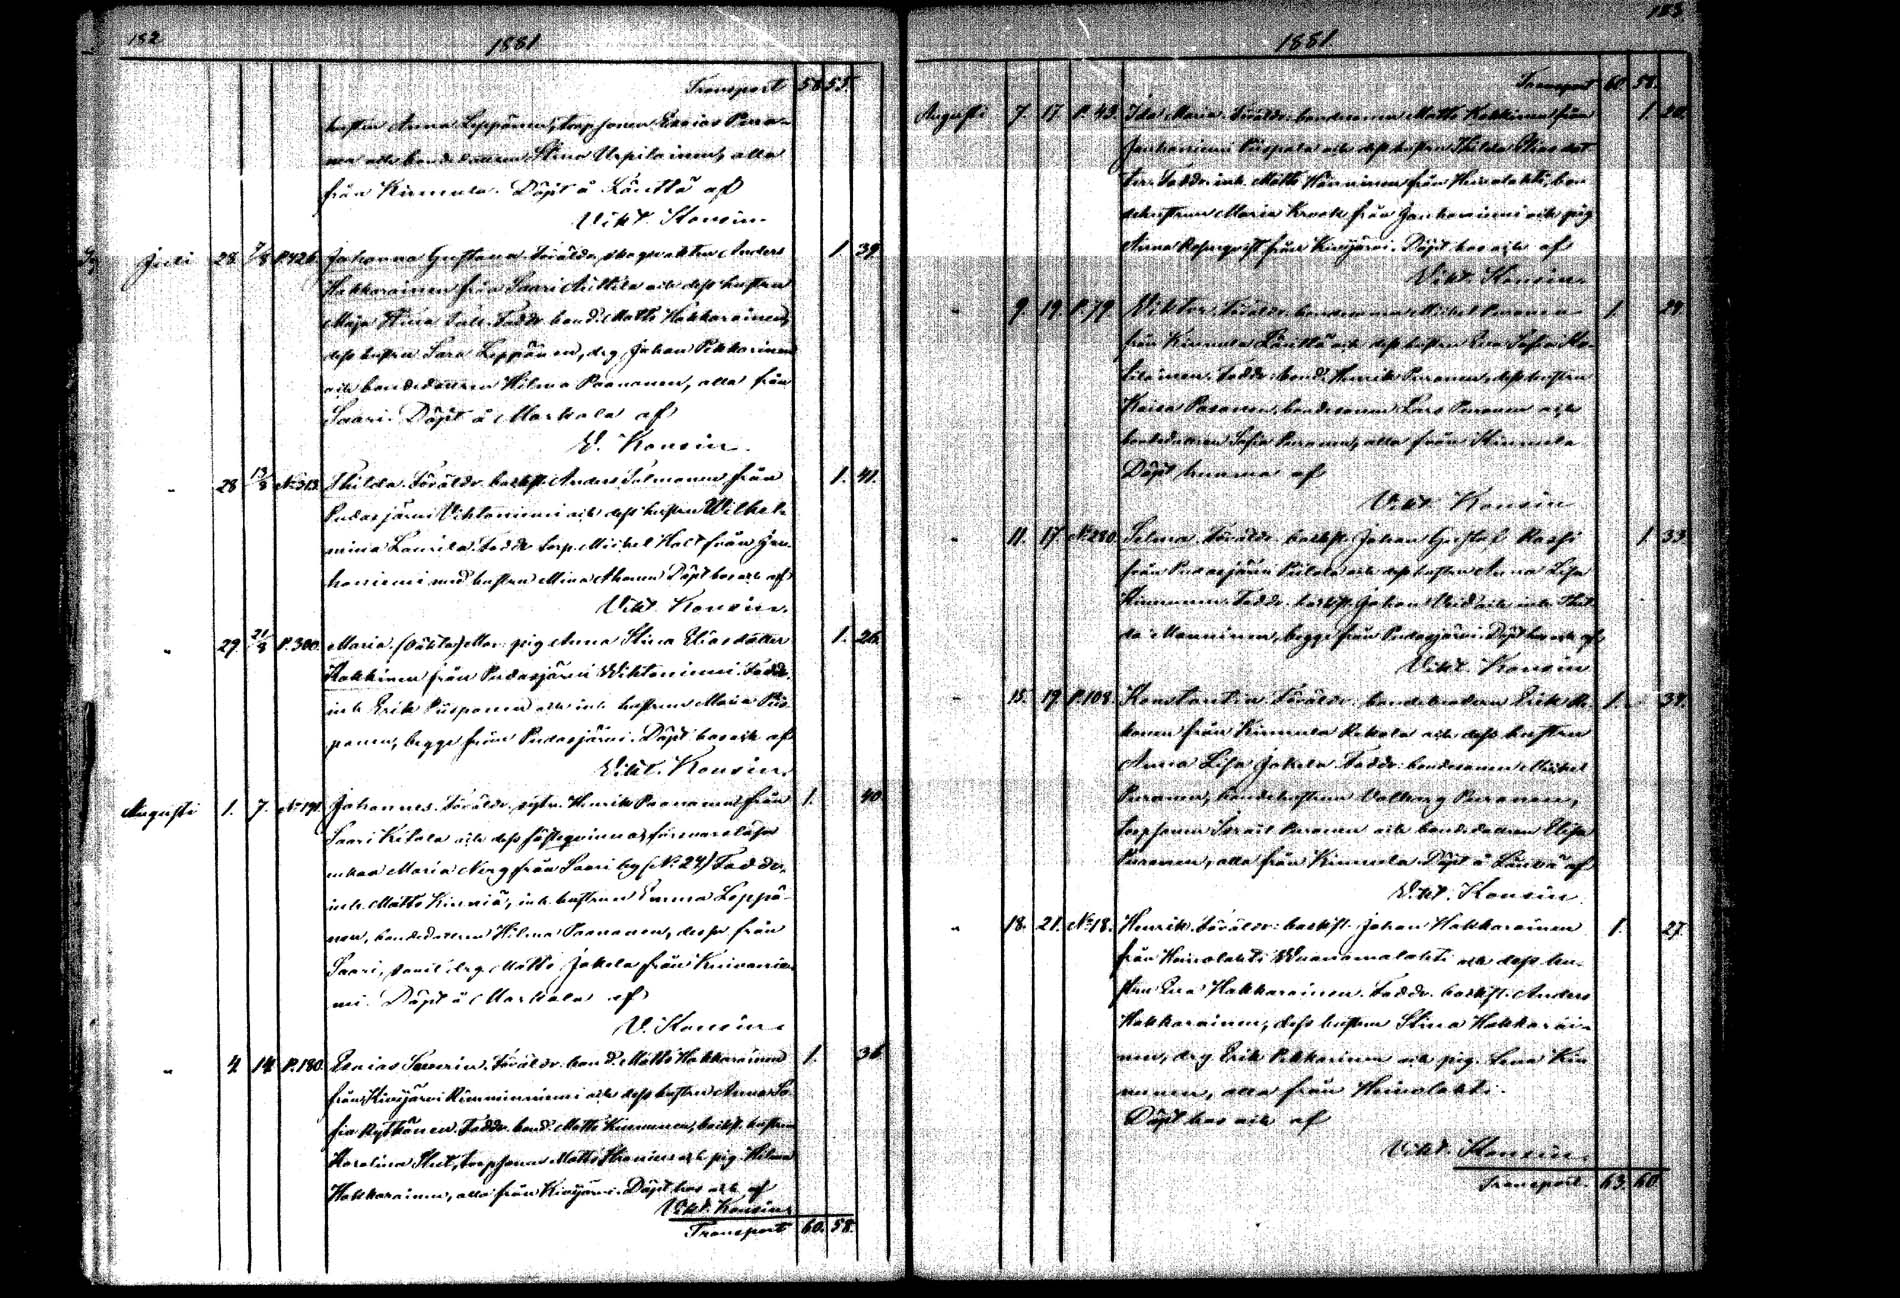 182
1881
Transport 58. 55.
hustru Anna Leppänen, torpsonen Esaias Pura-
nen och bondedottren Stina Urpilainen, alla
från Kinnula. Döpt å Länttä af
Vikt. Konsin.
Juli 28 7/8 P.426. Johanna Gustava. Föräldr. skogvaktren Anders 1. 39.
Hakkarainen från Saari och dess hustru
Maja Stina. Faddr. bond. Matts Hakkarainen,
dess hustru Sara Leppänen, drg. Johan Pekkarinen
och bondedottren Hilma Paananen, alla från
Saari. Döpt å Markala af
V. Konsin.
" 28 13/8 No 313. Thilda. Föräldr. backst. Anders Salmonen från 1. 41.
Pudasjärvi Viktoniemi och dess hustru Wilhel-
mina Laurila. Faddr. torp. Michel från Jan-
honiemi med hustru Mina Ahonen. Döpt hos och af
Vikt. Konsin.
" 29 21/8 P.300. Maria. (Oäkta) Mor. pig. Anna Stina Eliasdotter 1. 26.
Kokkinen från Pudasjärvi Wiktoniemi. Faddr.
inh. Erik Piispanen och inh. hustrun Maria Piis-
panen, begge från Pudasjärvi. Döpt hos och af
Vikt. Konsin.
Augusti 1. 7. No 191. Johannes. Föräldr. sytn. Henrik Paananen från 1. 40
Saari Kitola och dess fästeqvinna
enkan Maria Nerg från Saari by (No 24) Faddr.
inh. Matts Kinniä, inh. hustrun Emma Leppä-
nen, bondedottren Hilma Paananen, dessa från
Saari, samt drg. Matts Jakola från Kuivanie-
mi. Döpt å Markala af
V. Konsin.
" 4. 14. P.180. Esaias Severin. Föräldr. bond. Matts Hakkarainen 1. 36
från Kivijärvi och dess hustru Anna So-
fia Rytkönen. Faddr. bond. Matts Kinnunen, backst. hustrun
Karolina torpsonen Matts och pig. Hilma
Hakkarainen, alla från Kivijärvi. Döpt hos och af
Vikt. Konsin.
Transport 60. 58.
183.
1881.
Transport 60. 58.
Augusti 7. 17. P.43. Ida Maria. Föräldr. bondesonen Matts Kokkinen från 1. 20.
Janhoniemi Puspala och dess hustru Thilda Eliasdot-
ter. Faddr. inh. Matts Hänninen från Heinolahti, bon-
dehustrun Maria Krook från Janhoniemi och pig.
Anna från Kivijärvi. Döpt hos och af
Vikt. Konsin.
" 9. 19. P.79 Viktor. Föräldr. bondesonen Michel Puranen 1. 29.
från Kinnula Läntttä och dess hustru Eva Sofia
Faddr. bond. Henrik Puranen, dess hustru
Kaisa Pasanen, bondesonen Lars Puranen och
bondedottren Sofia Puranen, alla från Kinnula
Döpt hemma af
Vikt. Konsin
" 11. 17 No 280. Selma. Föräldr. backst. Johan Gustaf 1. 33.
från Pudasjärvi och dess hustru Anna Lisa
Kinnunen. Faddr. backst. Johan och inh. Thil-
da Manninen, begge från Pudasjärvi. Döpt hos och af
Vikt. Konsin
" 15. 19. P.108. Konstantin. Föräldr. bondebrodren Erik Re- 1. 34.
konen från Kinnula Rekola och dess hustru
Anna Lisa Jakola. Faddr. bondesonen Michel
Puranen, bondehustrun Valborg Puranen,
torpsonen Israel Puranen och bondedottren Elisa
Puranen, alla från Kinnula. Döpt å Läntä af
Vikt. Konsin.
" 18. 21. No 18. Henrik. Föräldr. backst. Johan Hakkarainen 1. 27.
från Heinolahti Wuonamalahti och dess hu-
stru Eva Hakkarainen. Faddr. backst. Anders
Hakkarainen, dess hustru Stina Hakkarai-
nen, drg. Erik Pekkarinen och pig. Lena Kin-
nunen, alla från Heinolahti.
Döpt hos och af
Vikt. Konsin.
Transport. 63. 60